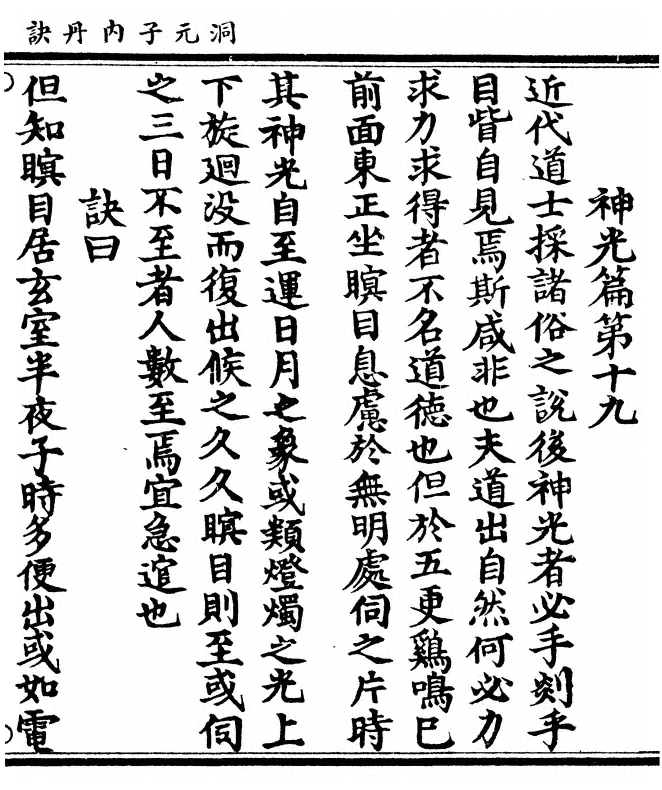 洞元子內丹訣
神光篇第十九
近代道士採諸俗之說後神光者必手剡乎
目眥自見焉斯咸非也夫道出自然何必力
求力求得者不名道德也但於五更鷄鳴巳
前面東正坐瞑目息慮於無明處伺之片時
其神光自至運日月之象或類燈燭之光上
下旋廻没而復出候之久久瞑目則至或伺
之三日不至者人數至焉宜急逭也
訣曰
但知瞑目居玄室半夜子時多便出或如電